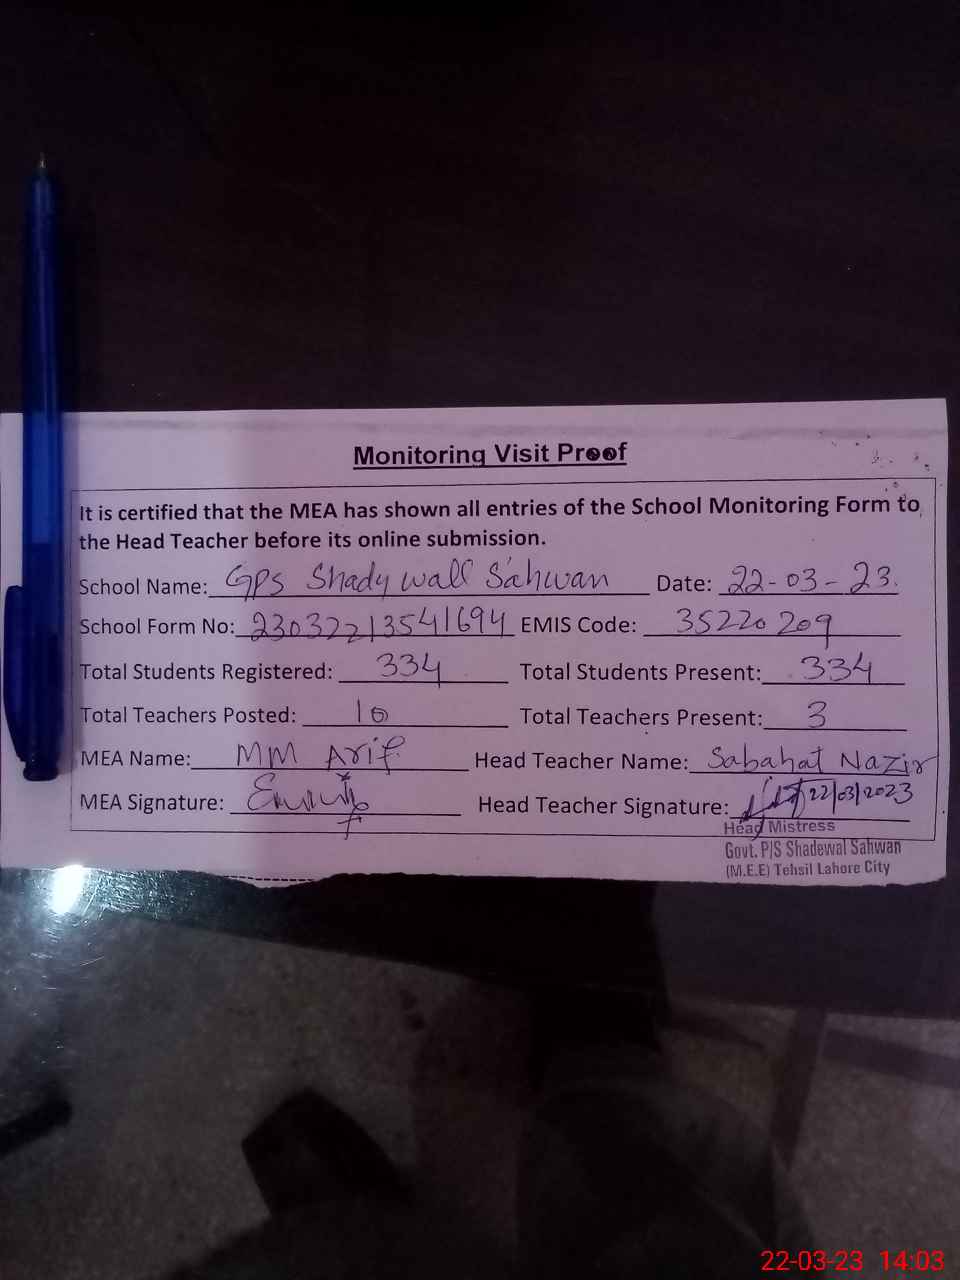 Monitoring Visit Proof
It is certified that the MEA has shown all entries of the School Monitoring Form to
the Head Teacher before its online submission.
School Name: GPS Shady wall Sahwan Date: 22-03-23.
School Form No: 23032213541694 EMIS Code: 35220209
Total Students Registered: 334 Total Students Present: 334
Total Teachers Posted: 10 Total Teachers Present: 3
MEA Name: MM Arif Head Teacher Name: Sabahat Nazir
MEA Signature: Head Teacher Signature: 22/03/2023
Head Mistress
Govt. P/S Shadewal Sahwan
(M.E.E) Tehsil Lahore City
22-03-23 14:03